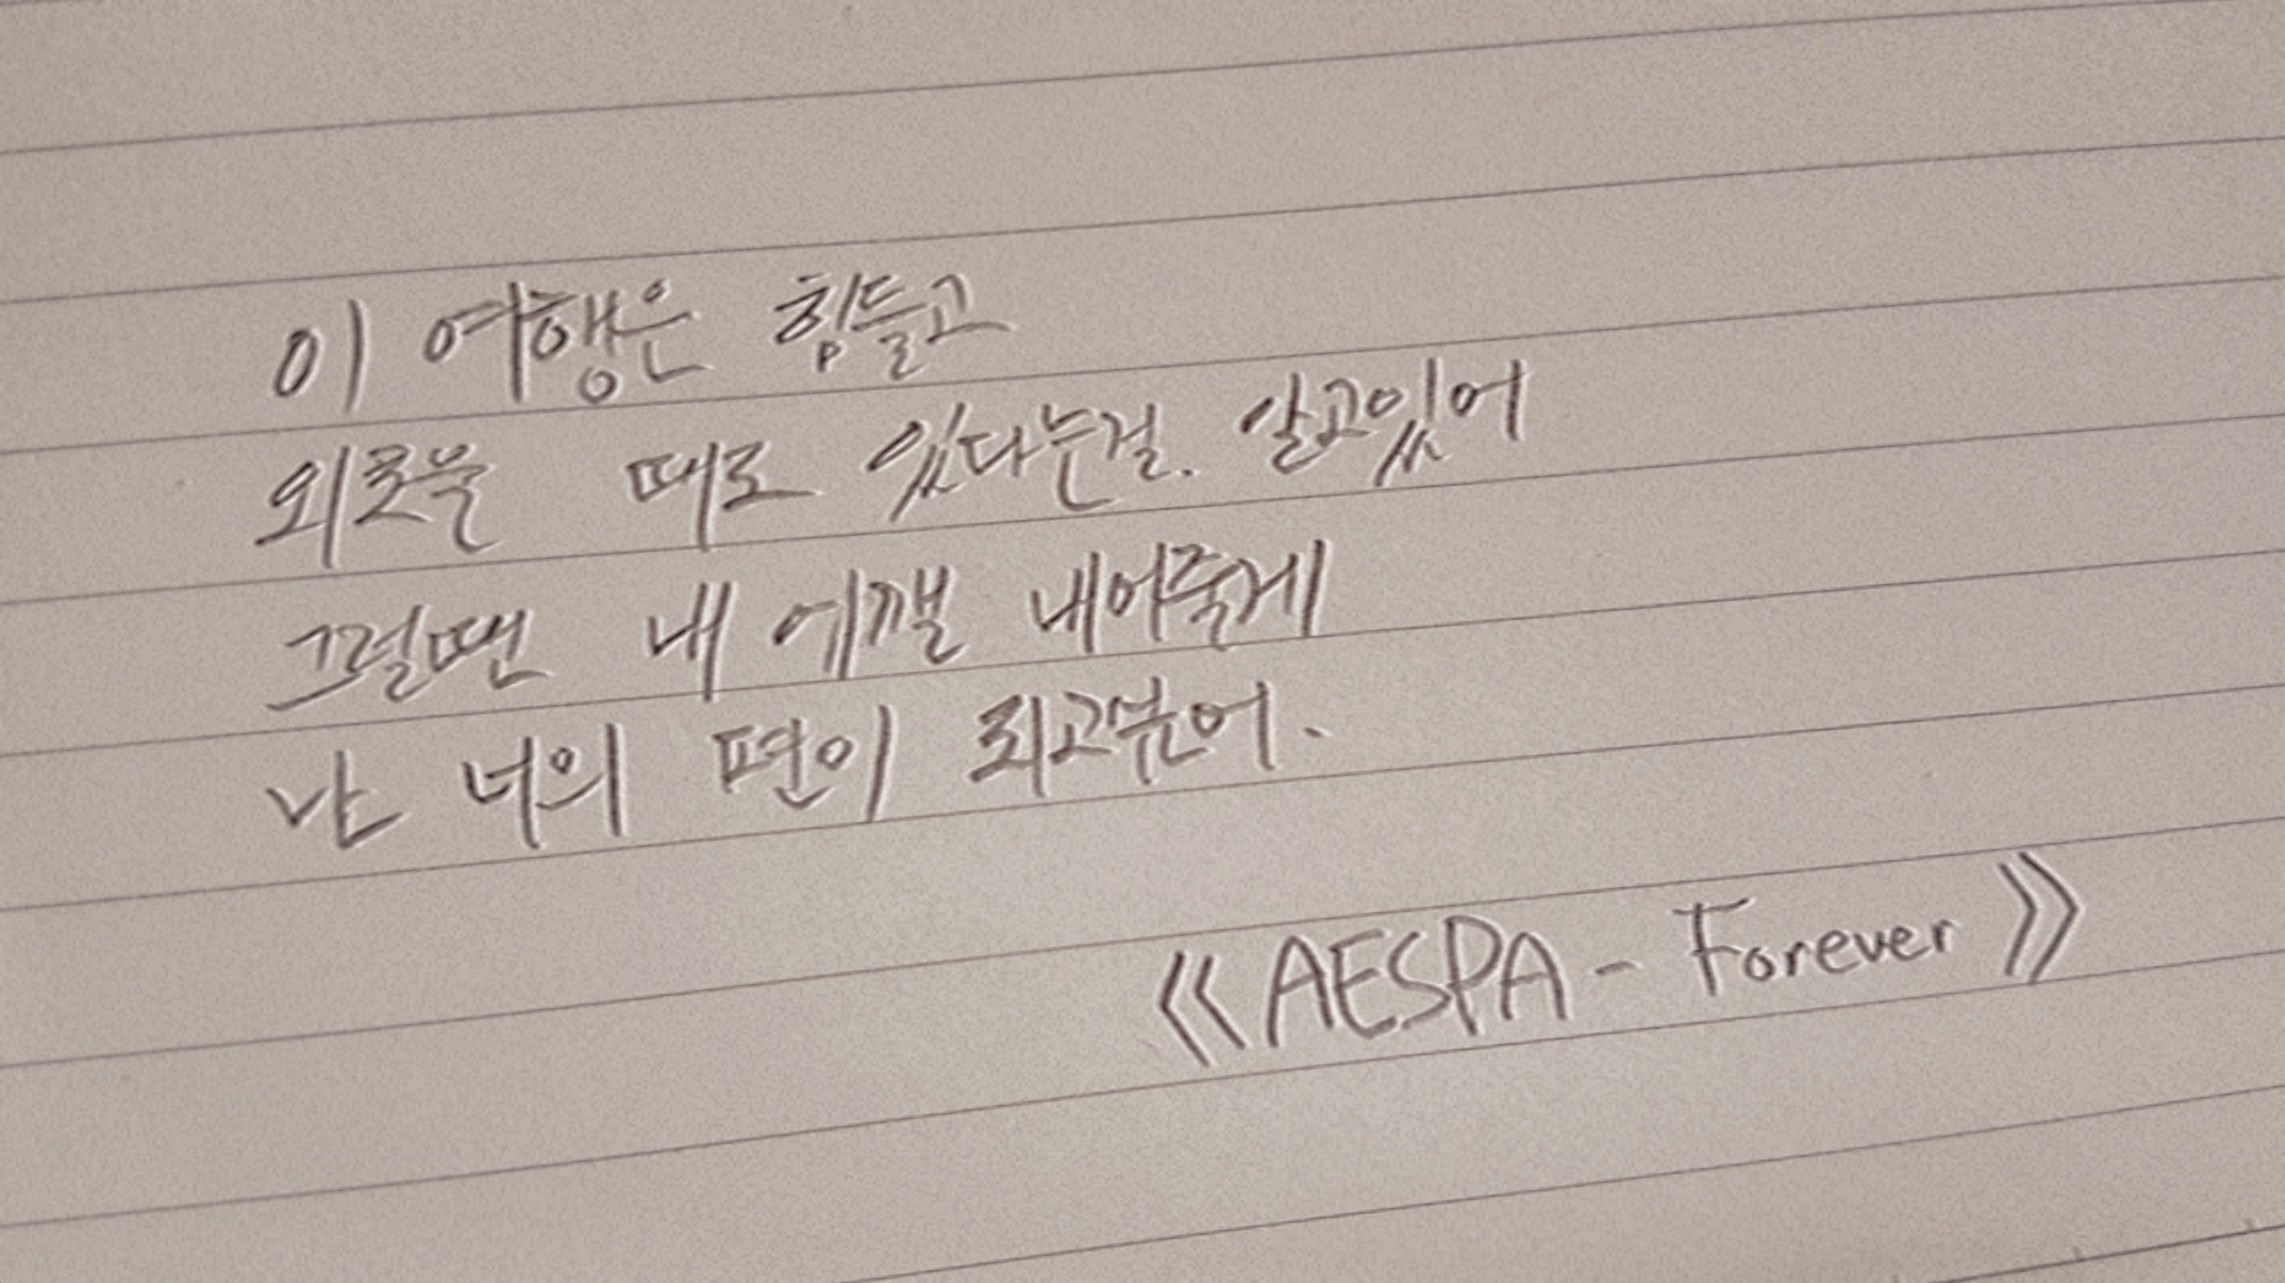 이 여행은 힘들고
외로울 때도 있다는걸. 알고있어
그럴땐 내 어깰 내어줄게
난 너의 편이 되고싶어.
《AESPA - Forever》